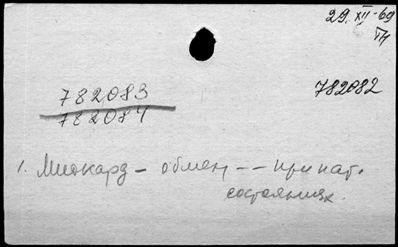 29.XII-69
782083
782082
782084
1. Миокард - обмен -- при пат.
состояниях.